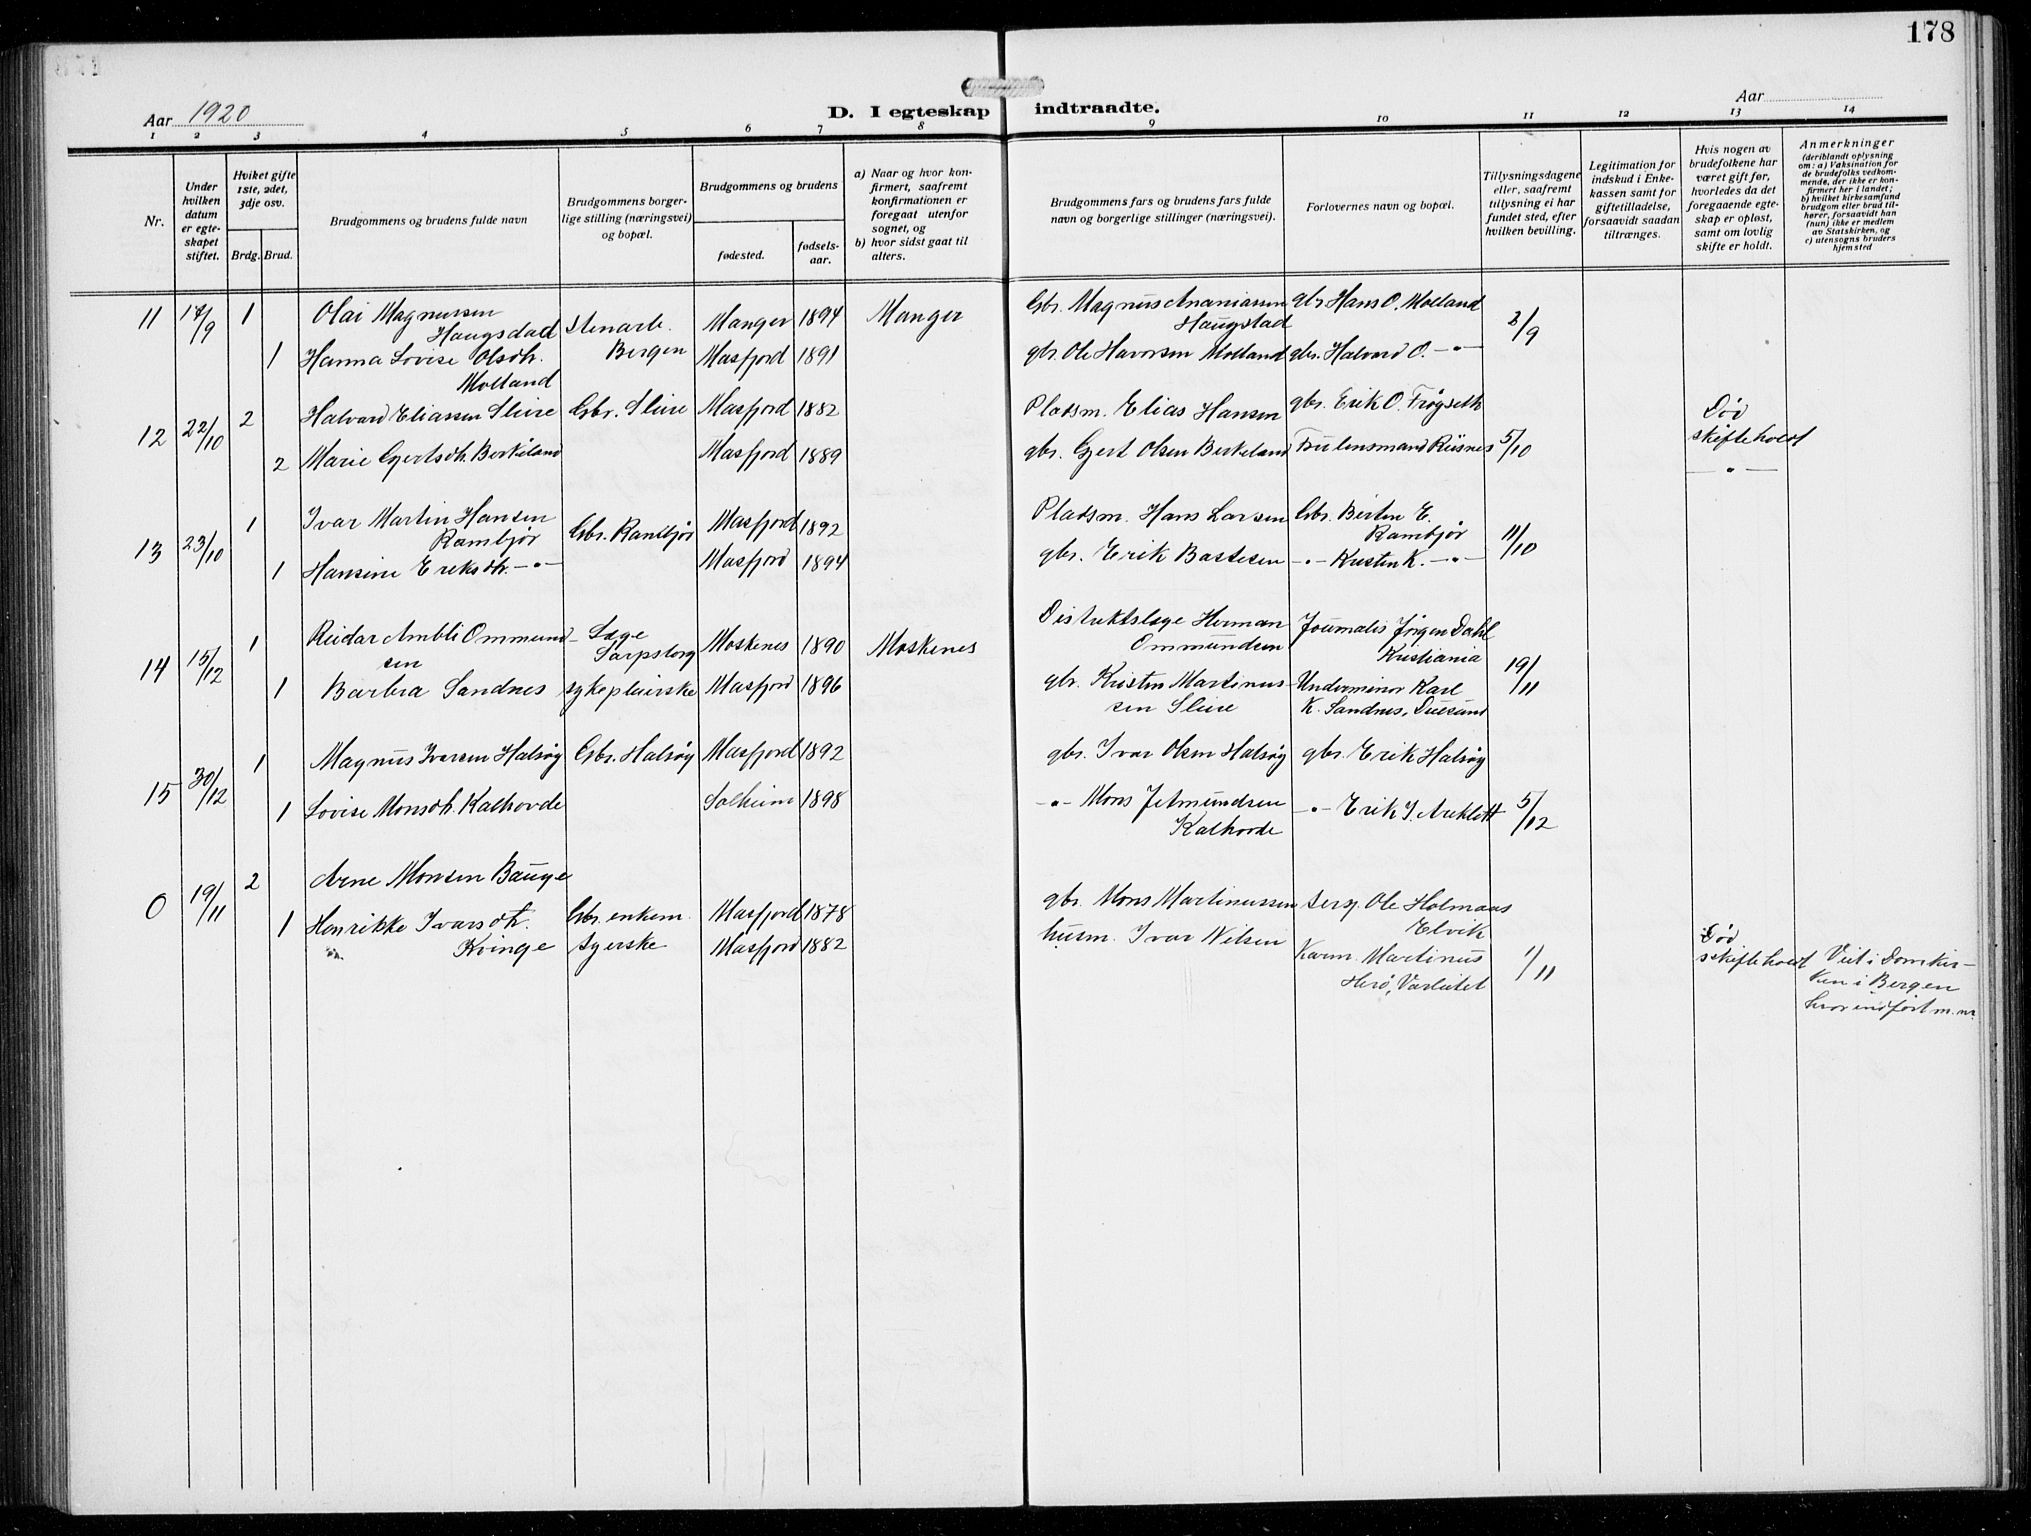 178
Aar 1920
D. I egteskap indtraadte.
Aar
1 2 3 4 5 6 7 8 9 10 11 12 13 14
Nr.
Under hvilken datum er egteskapet stiftet.
Hvilket gifte 1ste, 2det, 3dje osv.
Brdg. Brud.
Brudgommens og brudens fulde navn
Brudgommens borgerlige stilling (næringsvei) og bopæl.
Brudgommens og brudens
fødested.
fødselsaar.
a) Naar og hvor konfirmert, saafremt konfirmationen er foregaat utenfor sognet, og
b) hvor sidst gaat til alters.
Brudgommens fars og brudens fars fulde navn og borgerlige stillinger (næringsvei).
Forlovernes navn og bopæl.
Tillysningsdagene eller, saafremt tillysning ei har fundet sted, efter hvilken bevilling.
Legitimation for indskud i Enkekassen samt for giftetilladelse, forsaavidt saadan tiltrænges.
Hvis nogen av brudefolkene har været gift før, hvorledes da det foregaaende egteskap er opløst, samt om lovlig skifte er holdt.
Anmerkninger
(deriblandt oplysning om: a) Vaksination for de brudefolks vedkommende, der ikke er konfirmert her i landet; b) hvilket kirkesamfund brudgom eller brud tilhører, forsaavidt han (hun) ikke er medlem av Statskirken, og c) utensogns bruders hjemsted
11 17/9 1 Olai Magnussen Haugsdad Stenarb. Bergen Manger 1894 Manger Gbr. Magnus Ananiassen Haugstad gbr Hans O. Molland 2/9
1 Hanna Lovise Olsdtr. Molland Masfjord 1891 gbr. Ole Havorsen Molland gbr. Halvard O. -"-
12 22/10 2 Halvard Eliassen Sleire Gbr. Sleire Masfjord 1882 Pladsm. Elias Hansen gbr. Erik O. Frøyseth 5/10 Død skifte holdt
2 Marie Gjertsdtr. Berkeland Masfjord 1889 gbr. Gjert Olsen Berkeland Lensmand Riisnes -"-
13 23/10 1 Ivar Martin Hansen Rambjør Gbr. Rambjør Masfjord 1892 Pladsm. Hans Larsen Gbr. Berten E. Rambjør 11/10
1 Hansine Eriksdtr. -"- Masfjord 1894 gbr. Erik Bastesen -"- Kristen K. -"-
14 15/12 1 Reidar Ambli Ommundsen Læge Sarpsborg Moskenes 1890 Moskenes Distriktslæge Herman Ommundsen Journalis Jørgen Dahl Kristiania 19/11
1 Barbra Sandnes sykepleierske Masfjord 1896 gbr. Kristen Martinussen Sleire Underminør Karl K. Sandnes, Duesund
15 30/12 1 Magnus Ivarsen Halsøy Gbr. Halsøy Masfjord 1892 gbr. Ivar Olsen Halsøy gbr. Erik Halsøy 5/12
1 Lovise Monsdtr. Kalhovde Solheim 1898 -"- Mons Jetmundsen Kalhovde -"- Erik I.
0 19/11 2 Arne Monsen Bauge Gbr. enkem. Masfjord 1878 gbr. Mons Martinussen Serg. Ole Holmaas Elvik 1/11 Død skifte holdt
1 Henrikke Ivarsdtr. Kvinge Syerske Masfjord 1882 husm. Ivar Nilsen Martinus Viet i Domkirken i Bergen hvor indført m. nr.